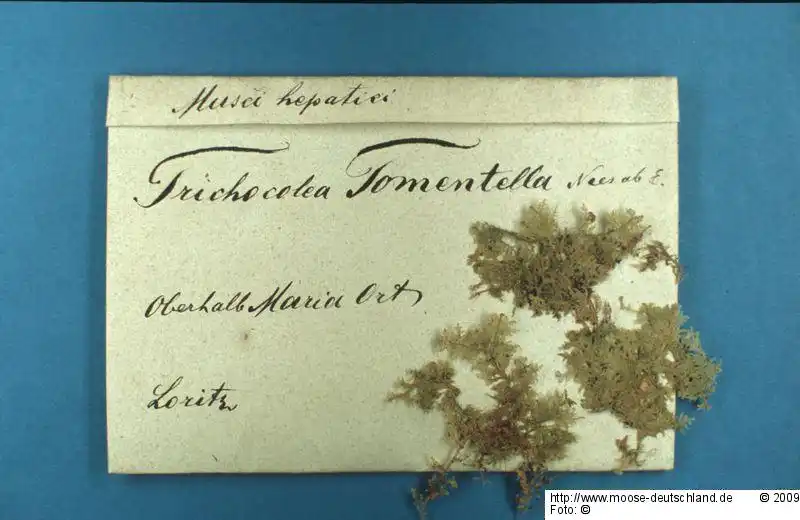 Musci hepatici
Trichocolea Tomentella Nees ab E.
Oberhalb Maria Ort
Loritz
http://www.moose-deutschland.de © 2009
Foto: ©